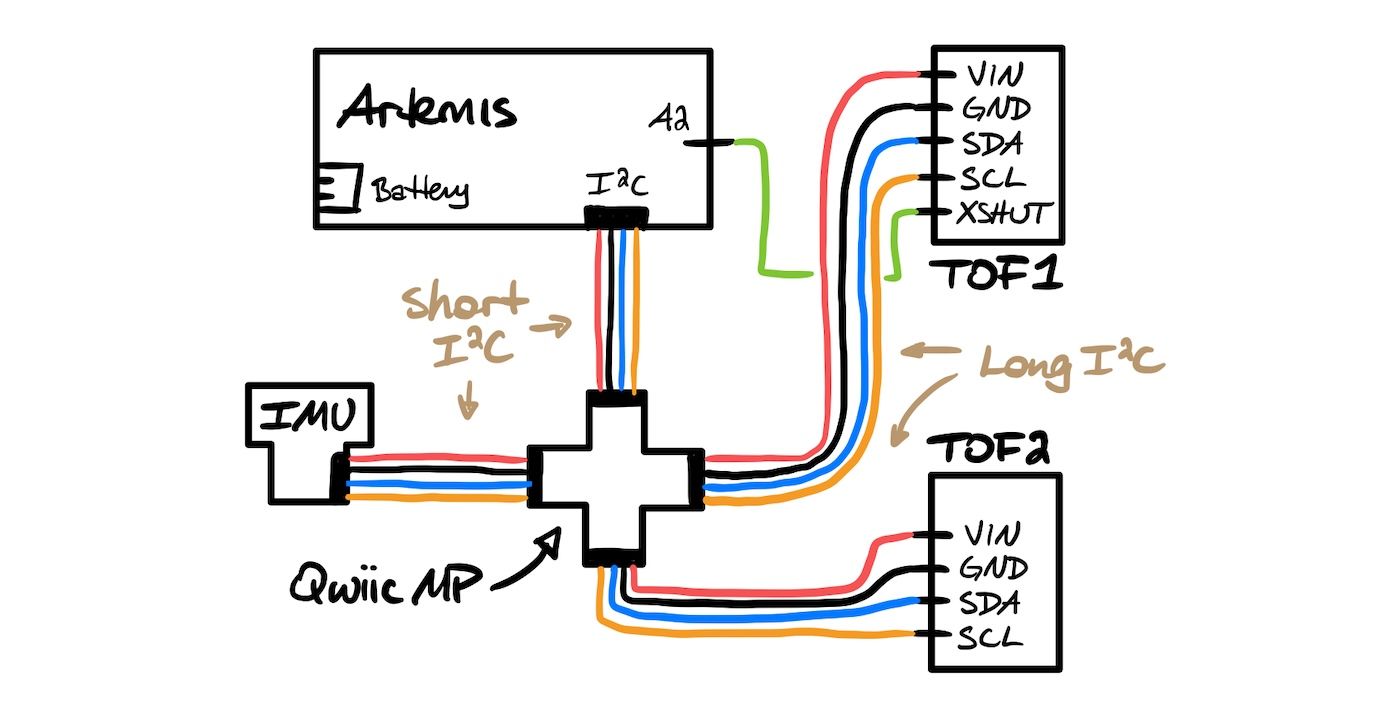 Artemis
A2
Battery
I²C
VIN
GND
SDA
SCL
XSHUT
TOF1
Short
I²C
Long I²C
IMU
TOF2
Qwiic MP
VIN
GND
SDA
SCL